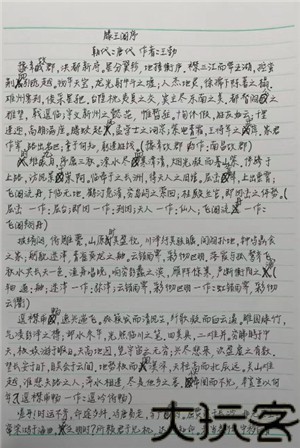 滕王阁序
朝代:唐代 作者:王勃
豫章故郡,洪都新府。星分翼轸,地接衡庐。襟三江而带五湖,控蛮
荆而引瓯越。物华天宝,龙光射牛斗之墟;人杰地灵,徐孺下陈蕃之榻。
雄州雾列,俊采星驰。台隍枕夷夏之交,宾主尽东南之美。都督阎公之雅
望,棨戟遥临;宇文新州之懿范,襜帷暂驻。十旬休假,胜友如云;千里
逢迎,高朋满座。腾蛟起凤,孟学士之词宗;紫电青霜,王将军之武库。家君
作宰,路出名区;童子何知,躬逢胜饯。(豫章故郡 一作:南昌故郡)
维九月,序属三秋。潦水尽而寒潭清,烟光凝而暮山紫。俨骖騑于
上路,访风景于崇阿。临帝子之长洲,得天人之旧馆。层峦耸翠,上出重霄;
飞阁流丹,下临无地。鹤汀凫渚,穷岛屿之萦回;桂殿兰宫,即冈峦之体势。(
层峦 一作:层台;即冈 一作:列冈;天人 一作:仙人;飞阁流丹 一作:
飞阁翔丹)
披绣闼,俯雕甍,山原旷其盈视,川泽纡其骇瞩。闾阎扑地,钟鸣鼎食
之家;舸舰迷津,青雀黄龙之舳。云销雨霁,彩彻区明。落霞与孤鹜齐飞,
秋水共长天一色。渔舟唱晚,响穷彭蠡之滨,雁阵惊寒,声断衡阳之浦。(
轴 通:舳;迷津 一作:弥津;云销雨霁,彩彻区明 一作:虹销雨霁,彩彻
云衢)
遥襟甫畅,逸兴遄飞。爽籁发而清风生,纤歌凝而白云遏。睢园绿竹,
气凌彭泽之樽;邺水朱华,光照临川之笔。四美具,二难并。穷睇眄于中
天,极娱游于暇日。天高地迥,觉宇宙之无穷;兴尽悲来,识盈虚之有数。
望长安于日下,目吴会于云间。地势极而南溟深,天柱高而北辰远。关山难
越,谁悲失路之人;萍水相逢,尽是他乡之客。怀帝阍而不见,奉宣室以何
年?(遥襟甫畅 一作:遥吟俯畅)
嗟乎!时运不齐,命途多舛。冯唐易老,
大玩客